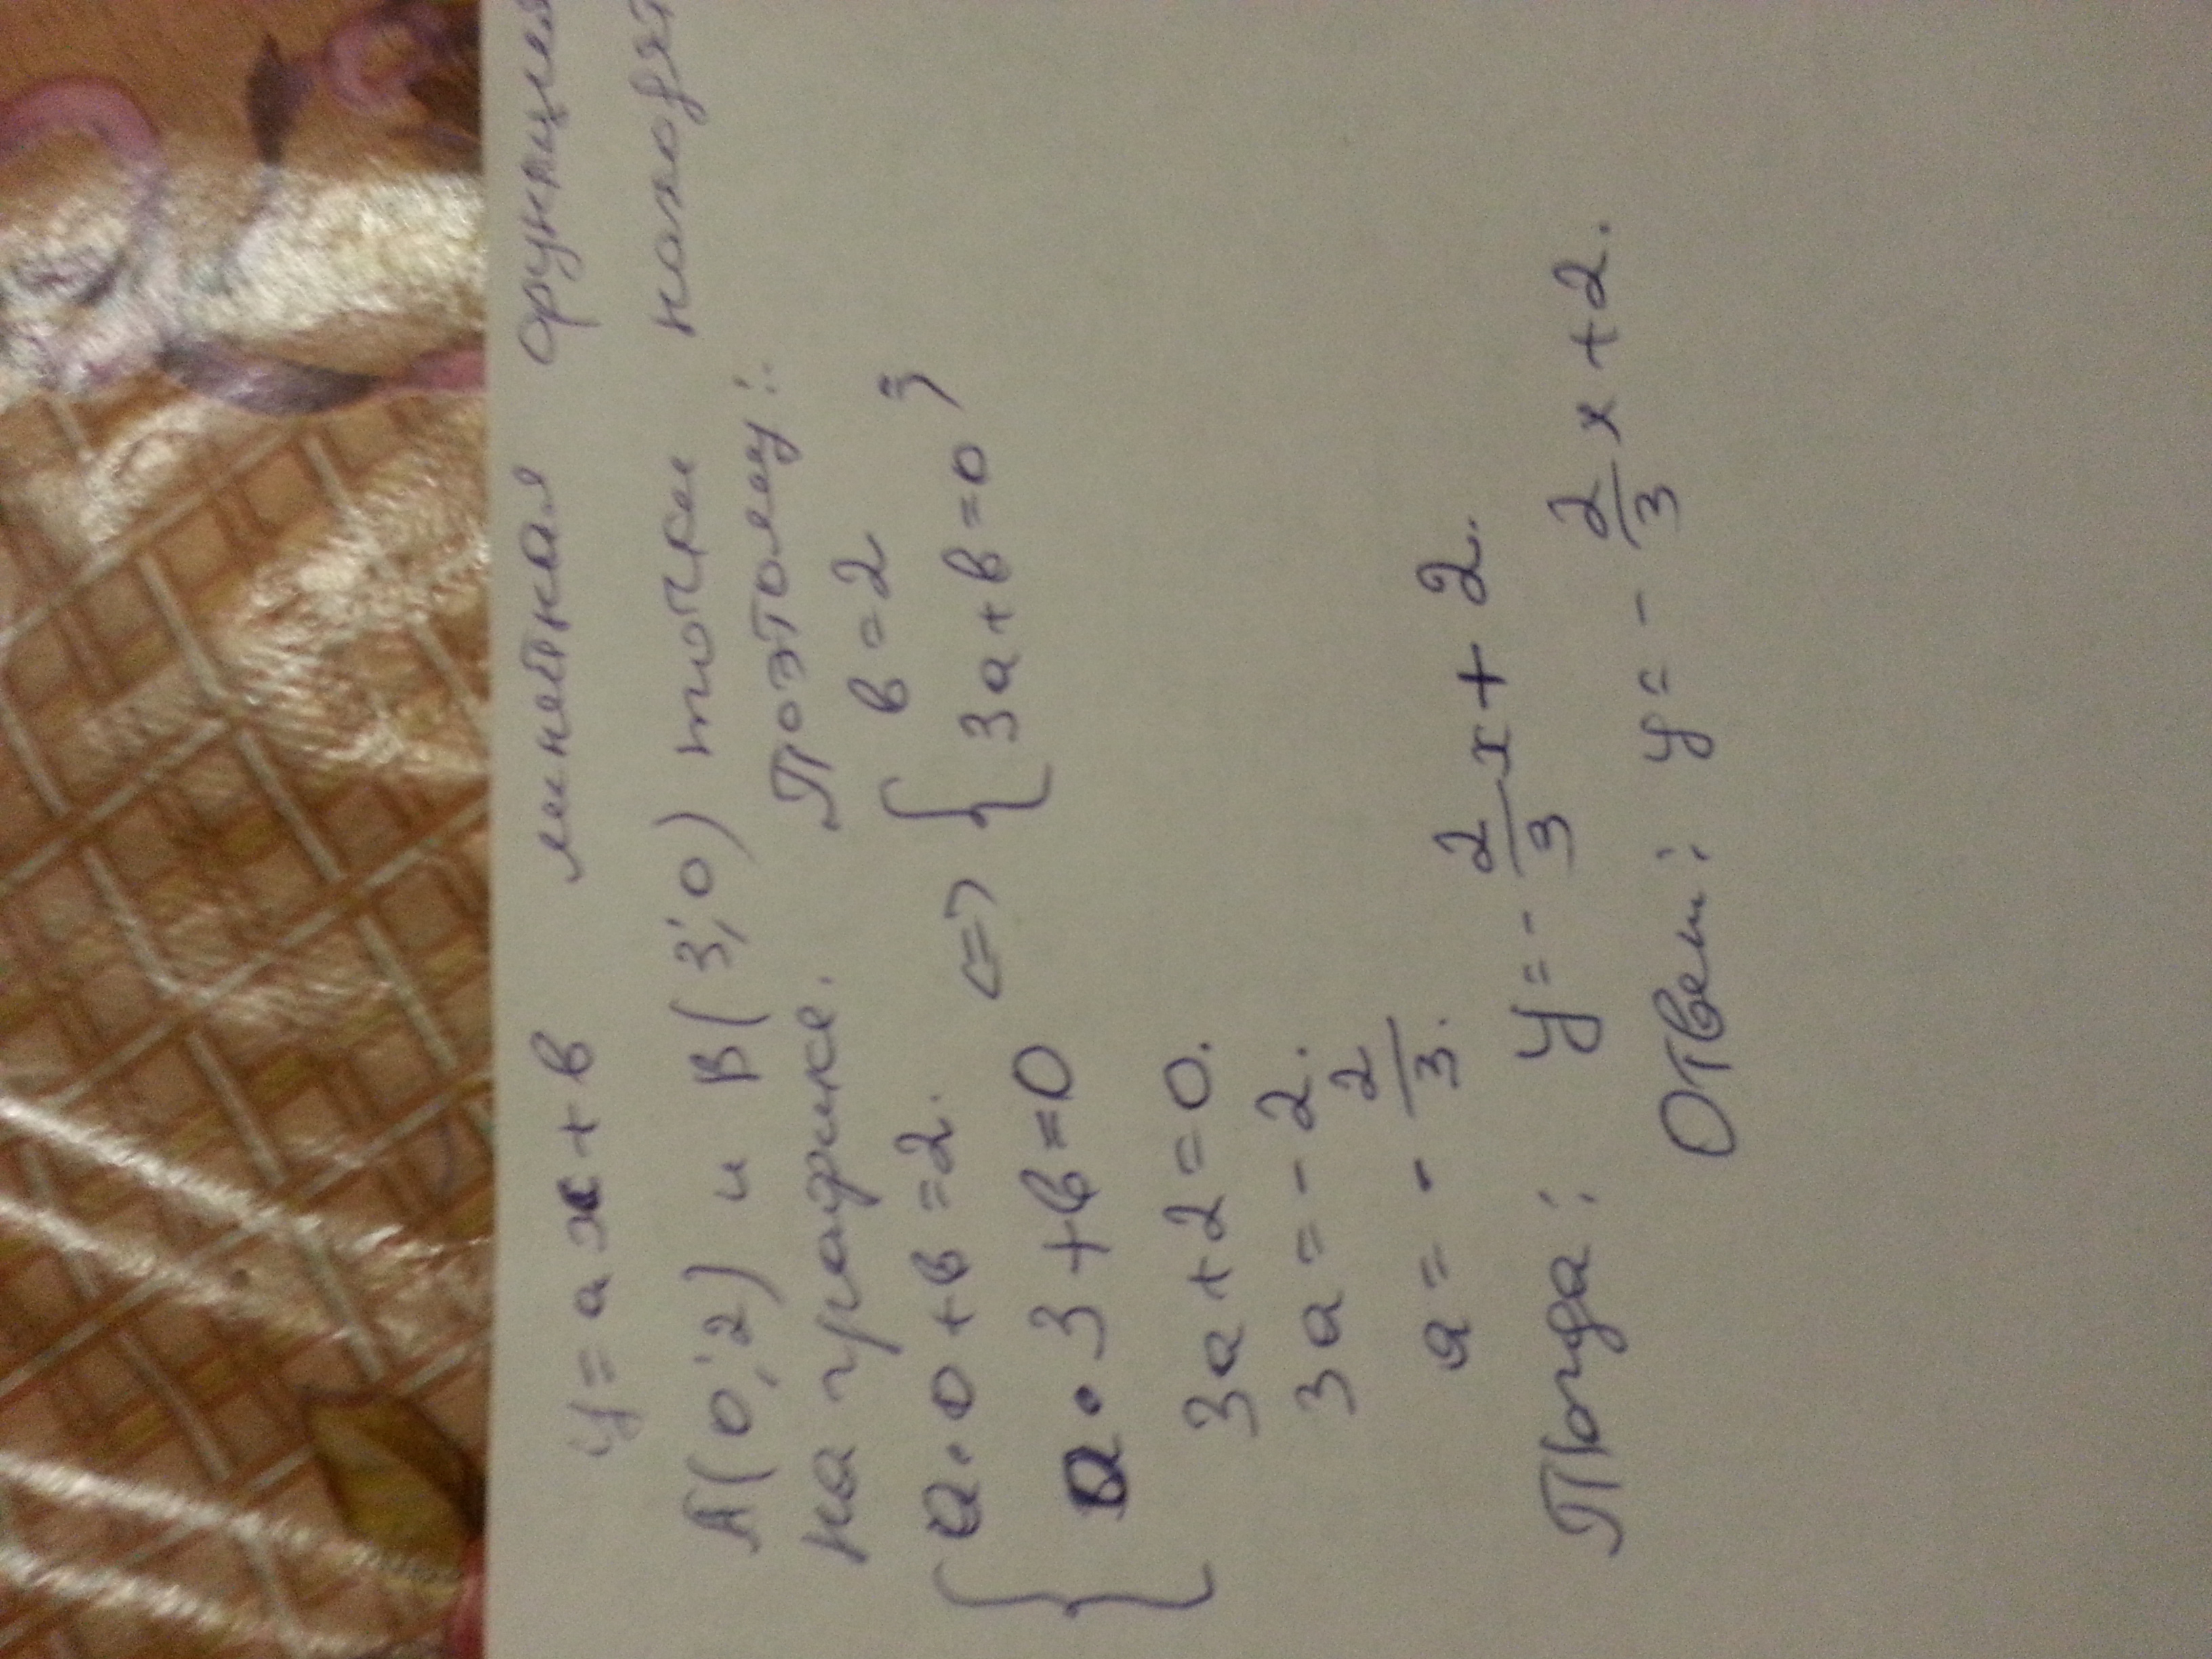 y = ax + в линейная функция
А(0; 2) и В(3; 0) точки находят
на графике. Поэтому:
{ a · 0 + в = 2. <=> { в = 2
a · 3 + в = 0 3a + в = 0 ;
3a + 2 = 0.
3a = - 2.
a = - 2/3.
Тогда: y = - 2/3 x + 2.
Ответ: y = - 2/3 x + 2.